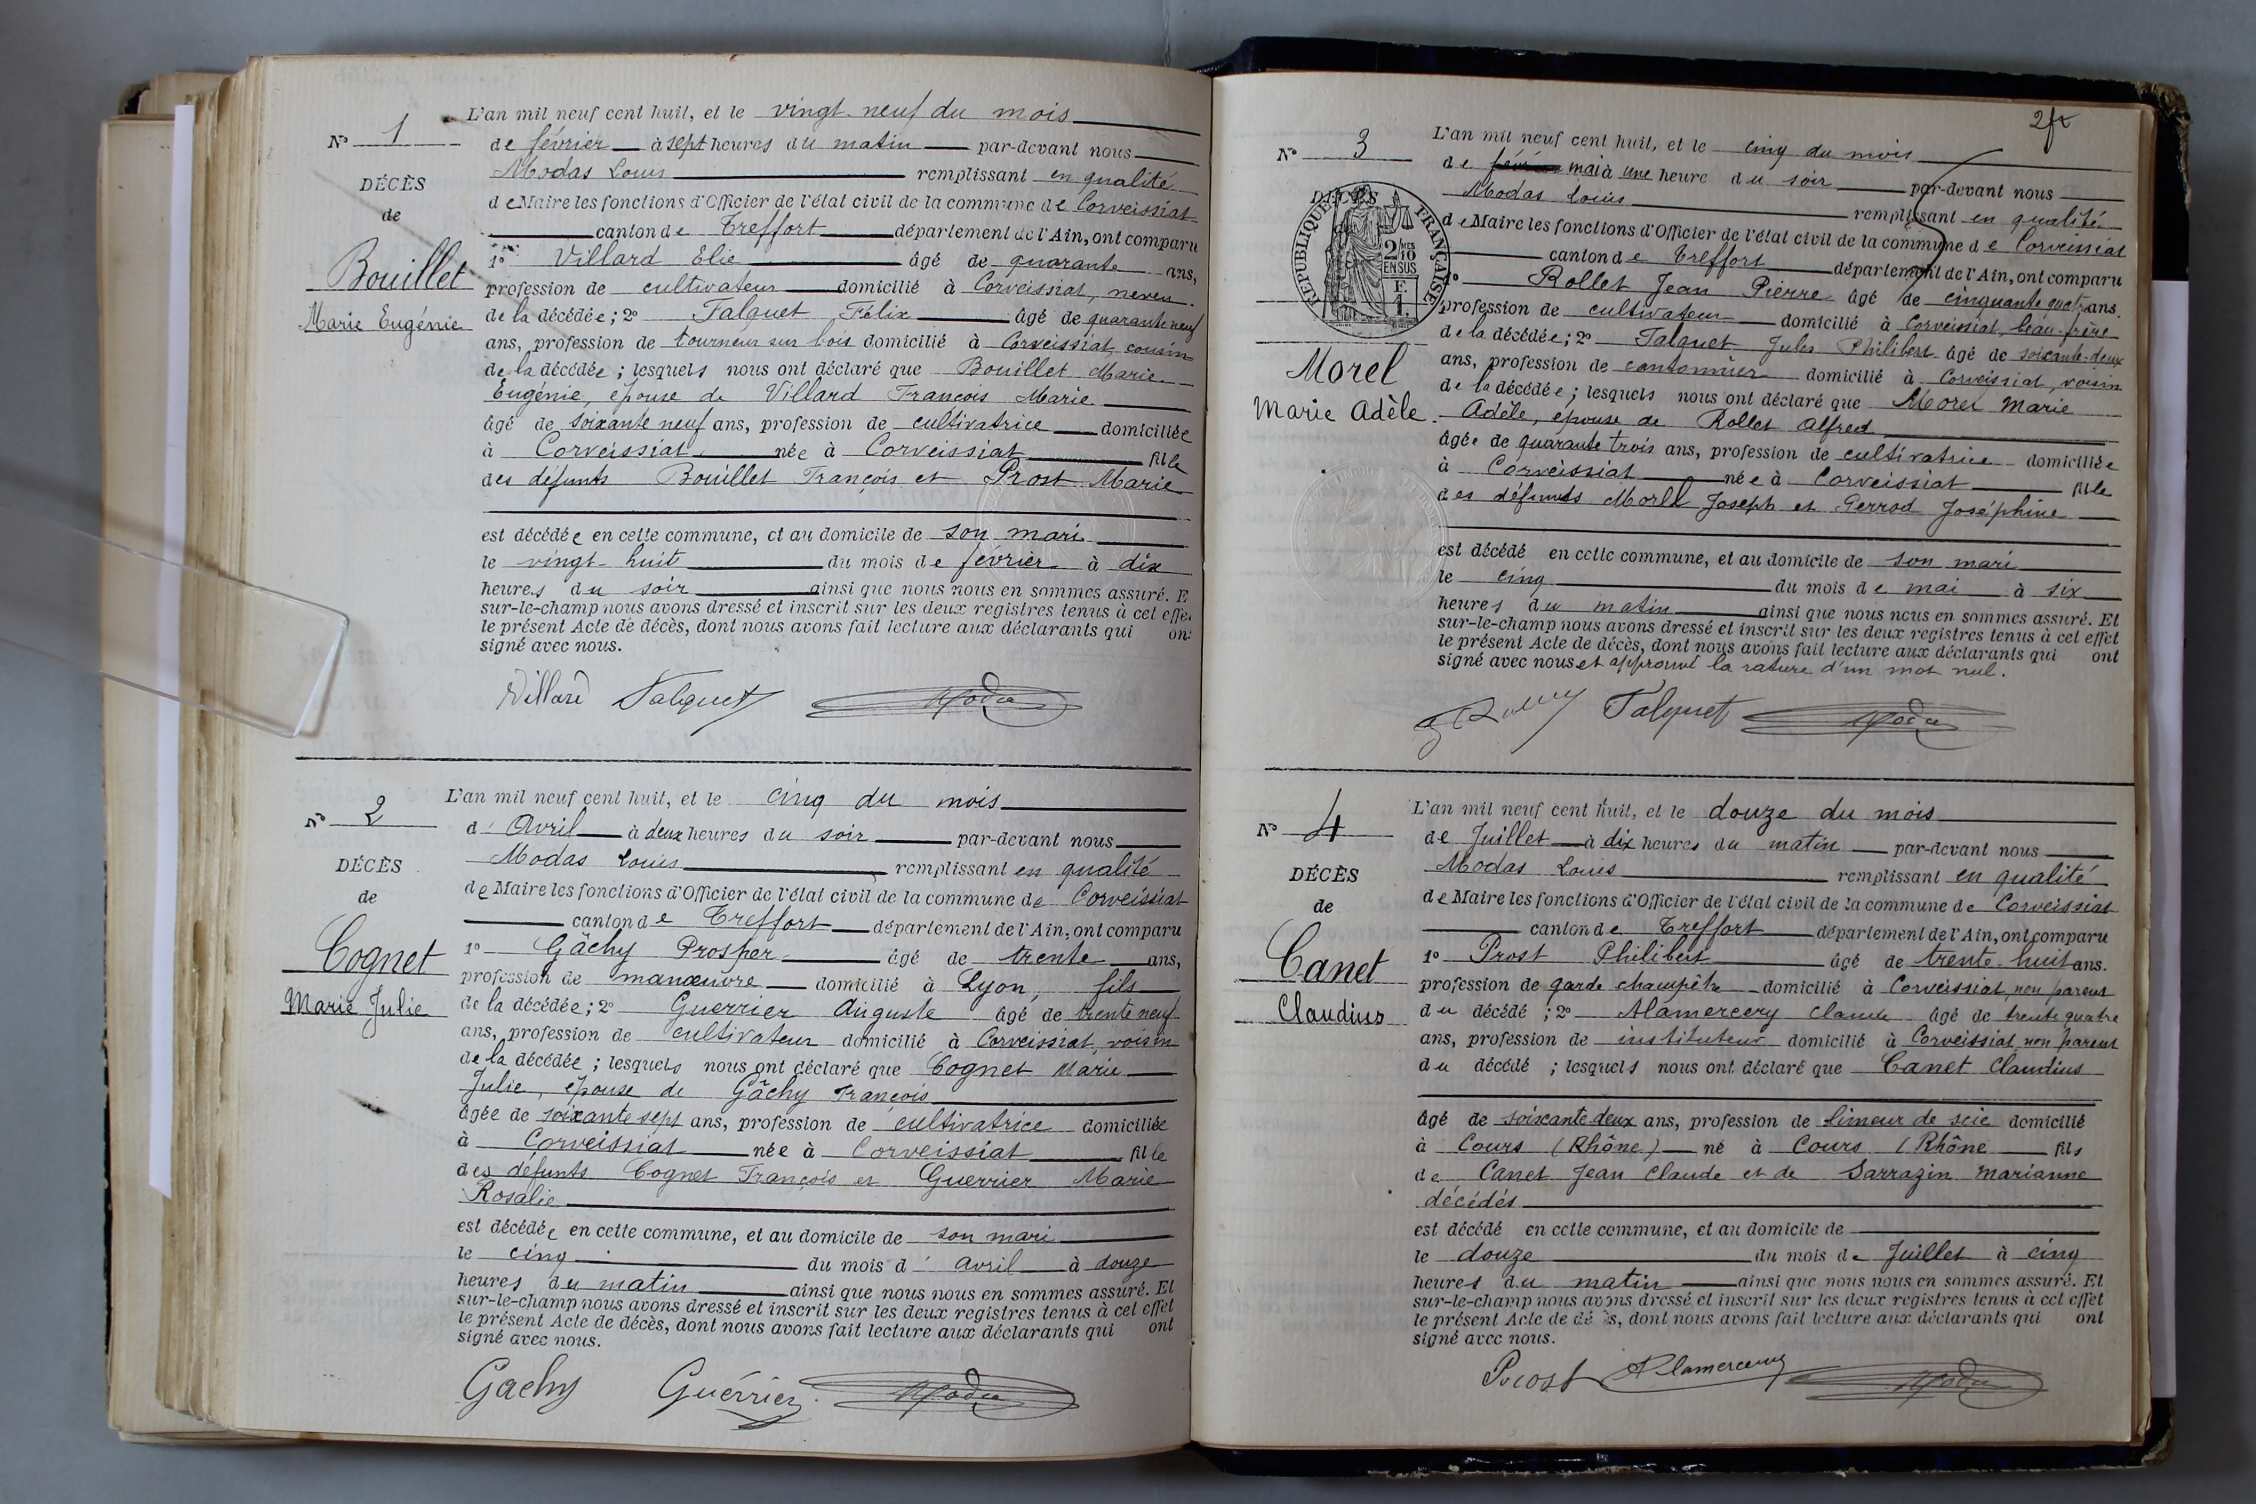 L'an mil neuf cent huit, et le vingt-neuf du mois
N° 1
de février à sept heures du matin par-devant nous
Modas Louis remplissant en qualité
DÉCÈS
de Maire les fonctions d'Officier de l'état civil de la commune de Corveissiat
de
canton de Treffort département de l'Ain, ont comparu
1° Villard Elie âgé de quarante ans,
Bouillet
profession de cultivateur domicilié à Corveissiat, neveu
Marie Eugénie
de la décédée; 2° Falquet Félix âgé de quarante neuf
ans, profession de tourneur sur bois domicilié à Corveissiat, cousin
de la décédée; lesquels nous ont déclaré que Bouillet Marie
Eugénie, épouse de Villard François Marie
âgé de soixante neuf ans, profession de cultivatrice domiciliée
à Corveissiat née à Corveissiat fille
des défunts Bouillet François et Prost Marie
est décédée en cette commune, et au domicile de son mari
le vingt-huit du mois de février à dix
heures du soir ainsi que nous nous en sommes assuré. E
sur-le-champ nous avons dressé et inscrit sur les deux registres tenus à cet effe
le présent Acte de décès, dont nous avons fait lecture aux déclarants qui on
signé avec nous.
Villard Falquet Modas
L'an mil neuf cent huit, et le cinq du mois
N° 2
d' Avril à deux heures du soir par-devant nous
Modas Louis remplissant en qualité
DÉCÈS
de Maire les fonctions d'Officier de l'état civil de la commune de Corveissiat
de
canton de Treffort département de l'Ain, ont comparu
Cognet
1° Gâchy Prosper âgé de trente ans,
profession de manœuvre domicilié à Lyon, fils
Marie Julie
de la décédée; 2° Guerrier Auguste âgé de trente neuf
ans, profession de cultivateur domicilié à Corveissiat, voisin
de la décédée; lesquels nous ont déclaré que Cognet Marie
Julie, épouse de Gâchy François
âgée de soixante sept ans, profession de cultivatrice domiciliée
à Corveissiat née à Corveissiat fille
des défunts Cognet François et Guerrier Marie
Rosalie
est décédée en cette commune, et au domicile de son mari
le cinq du mois d' avril à douze
heures du matin ainsi que nous nous en sommes assuré. Et
sur-le-champ nous avons dressé et inscrit sur les deux registres tenus à cet effet
le présent Acte de décès, dont nous avons fait lecture aux déclarants qui ont
signé avec nous.
Gachy Guérrier Modas
L'an mil neuf cent huit, et le cinq du mois
N° 3
de mai à une heure du soir par-devant nous
Modas Louis remplissant en qualité
DÉCÈS
de Maire les fonctions d'Officier de l'état civil de la commune de Corveissiat
RÉPUBLIQUE FRANÇAISE
2/10 EN SUS
F. 1.
canton de Treffort département de l'Ain, ont comparu
1° Rollet Jean Pierre âgé de cinquante quatre ans.
profession de cultivateur domicilié à Corveissiat, beau-frère
de la décédée; 2° Falquet Jules Philibert âgé de soixante-deux
Morel
ans, profession de cantonnier domicilié à Corveissiat, voisin
Marie Adèle
de la décédée; lesquels nous ont déclaré que Morel Marie
Adèle, épouse de Rollet Alfred
âgée de quarante trois ans, profession de cultivatrice domiciliée
à Corveissiat née à Corveissiat fille
des défunts Morel Joseph et Perrod Joséphine
est décédé en cette commune, et au domicile de son mari
le cinq du mois de mai à six
heures du matin ainsi que nous nous en sommes assuré. Et
sur-le-champ nous avons dressé et inscrit sur les deux registres tenus à cet effet
le présent Acte de décès, dont nous avons fait lecture aux déclarants qui ont
signé avec nous et approuvé la rature d'un mot nul.
Falquet Modas
L'an mil neuf cent huit, et le douze du mois
N° 4
de Juillet à dix heures du matin par-devant nous
Modas Louis remplissant en qualité
DÉCÈS
de Maire les fonctions d'Officier de l'état civil de la commune de Corveissiat
de
canton de Treffort département de l'Ain, ont comparu
Canet
1° Prost Philibert âgé de trente-huit ans.
profession de garde champêtre domicilié à Corveissiat, non parent
Claudius
du décédé; 2° Alamercery Claude âgé de trente quatre
ans, profession de instituteur domicilié à Corveissiat, non parent
du décédé; lesquels nous ont déclaré que Canet Claudius
âgé de soixante deux ans, profession de limeur de scie domicilié
à Cours (Rhône) né à Cours (Rhône fils
de Canet Jean Claude et de Sarrazin Marianne
décédés
est décédé en cette commune, et au domicile de
le douze du mois de Juillet à cinq
heures du matin ainsi que nous nous en sommes assuré. Et
sur-le-champ nous avons dressé et inscrit sur les deux registres tenus à cet effet
le présent Acte de décès, dont nous avons fait lecture aux déclarants qui ont
signé avec nous.
Prost Alamercery Modas